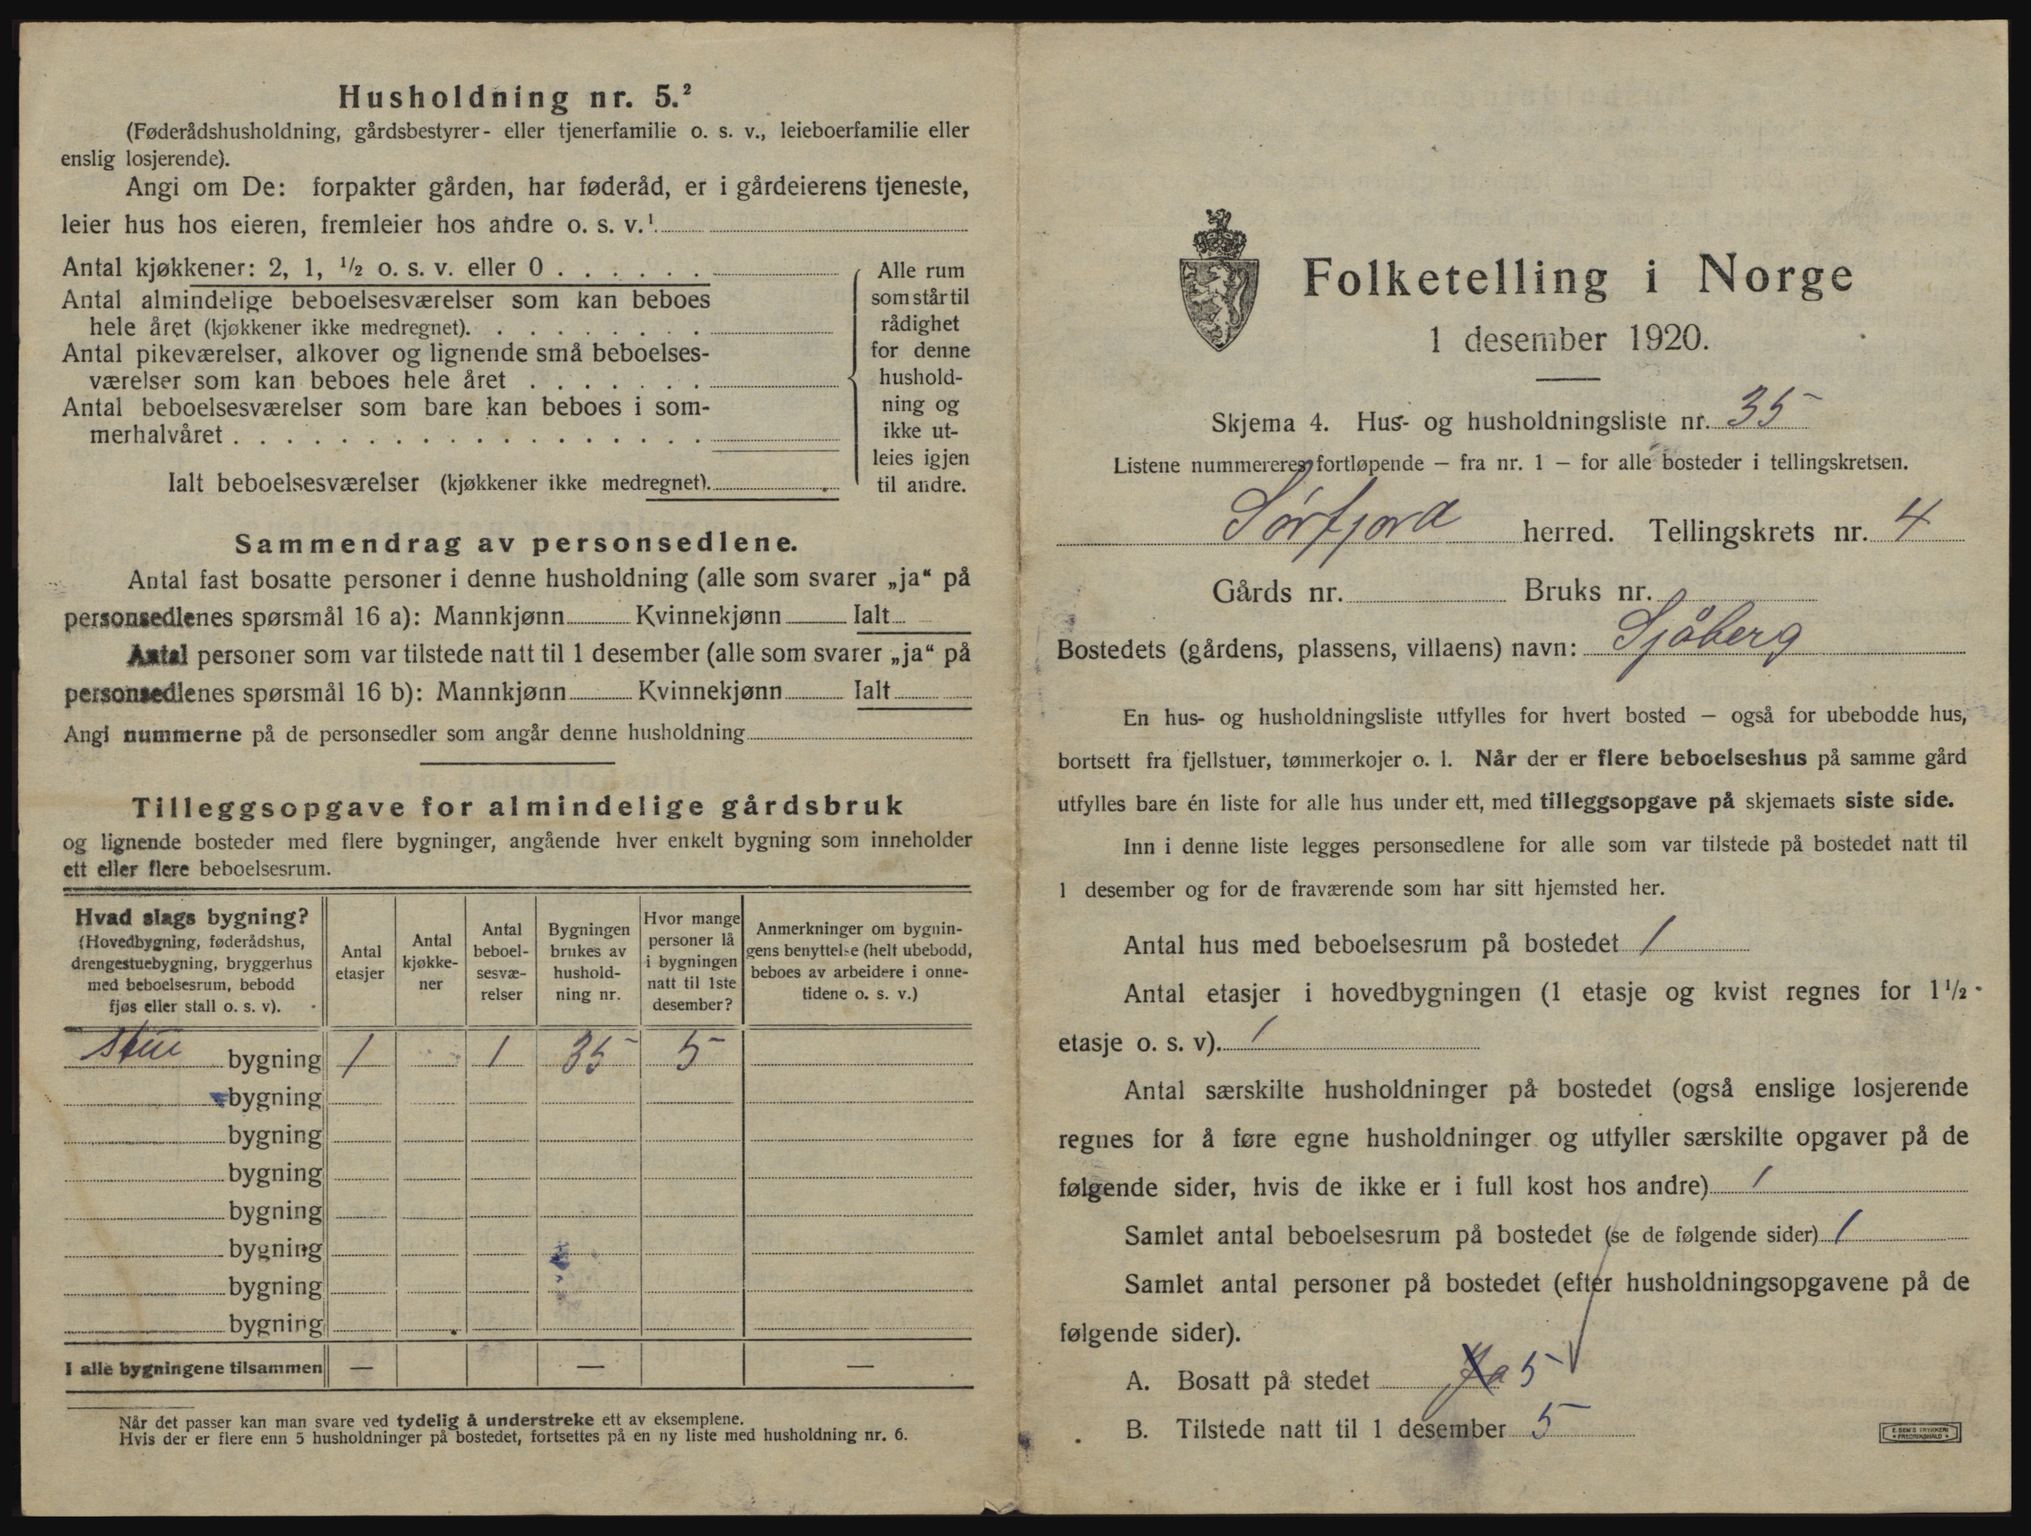 Husholdning nr. 5.²
(Føderådshusholdning, gårdsbestyrer- eller tjenerfamilie o. s. v., leieboerfamilie eller
enslig losjerende).
Angi om De: forpakter gården, har føderåd, er i gårdeierens tjeneste,
leier hus hos eieren, fremleier hos andre o. s. v.¹
Antal kjøkkener: 2, 1, ½ o. s. v. eller 0 . . . . . .
Antal almindelige beboelsesværelser som kan beboes
hele året (kjøkkener ikke medregnet). . . . . . . . .
Antal pikeværelser, alkover og lignende små beboelses-
værelser som kan beboes hele året . . . . . . .
Antal beboelsesværelser som bare kan beboes i som-
merhalvåret . . . . . . . . . . . . . . . . . .
Ialt beboelsesværelser (kjøkkener ikke medregnet).
Alle rum
som står til
rådighet
for denne
hushold-
ning og
ikke ut-
leies igjen
til andre.
Sammendrag av personsedlene.
Antal fast bosatte personer i denne husholdning (alle som svarer „ja“ på
personsedlenes spørsmål 16 a): Mannkjønn Kvinnekjønn Ialt
Antal personer som var tilstede natt til 1 desember (alle som svarer „ja“ på
personsedlenes spørsmål 16 b): Mannkjønn Kvinnekjønn Ialt
Angi nummerne på de personsedler som angår denne husholdning
Tilleggsopgave for almindelige gårdsbruk
og lignende bosteder med flere bygninger, angående hver enkelt bygning som inneholder
ett eller flere beboelsesrum.
Hvad slags bygning?
(Hovedbygning, føderådshus,
drengestuebygning, bryggerhus
med beboelsesrum, bebodd
fjøs eller stall o. s. v).
Antal
etasjer
Antal
kjøkke-
ner
Antal
beboel-
sesvæ-
relser
Bygningen
brukes av
hushold-
ning nr.
Hvor mange
personer lå
i bygningen
natt til 1ste
desember?
Anmerkninger om bygnin-
gens benyttelse (helt ubebodd,
beboes av arbeidere i onne-
tidene o. s. v.)
stue bygning 1 1 35 5
bygning
bygning
bygning
bygning
bygning
bygning
bygning
I alle bygningene tilsammen — — —
Når det passer kan man svare ved tydelig å understreke ett av eksemplene.
Hvis der er flere enn 5 husholdninger på bostedet, fortsettes på en ny liste med husholdning nr. 6.
Folketelling i Norge
1 desember 1920.
Skjema 4. Hus- og husholdningsliste nr. 35
Listene nummereres fortløpende — fra nr. 1 — for alle bosteder i tellingskretsen.
Sørfjord herred. Tellingskrets nr. 4
Gårds nr. Bruks nr.
Bostedets (gårdens, plassens, villaens) navn: Sjøberg
En hus- og husholdningsliste utfylles for hvert bosted — også for ubebodde hus,
bortsett fra fjellstuer, tømmerkojer o. l. Når der er flere beboelseshus på samme gård
utfylles bare én liste for alle hus under ett, med tilleggsopgave på skjemaets siste side.
Inn i denne liste legges personsedlene for alle som var tilstede på bostedet natt til
1 desember og for de fraværende som har sitt hjemsted her.
Antal hus med beboelsesrum på bostedet 1
Antal etasjer i hovedbygningen (1 etasje og kvist regnes for 1½
etasje o. s. v). 1
Antal særskilte husholdninger på bostedet (også enslige losjerende
regnes for å føre egne husholdninger og utfyller særskilte opgaver på de
følgende sider, hvis de ikke er i full kost hos andre) 1
Samlet antal beboelsesrum på bostedet (se de følgende sider) 1
Samlet antal personer på bostedet (efter husholdningsopgavene på de
følgende sider).
A. Bosatt på stedet Ja 5
B. Tilstede natt til 1 desember 5
E. SEM'S TRYKKERI
FREDRIKSHALD